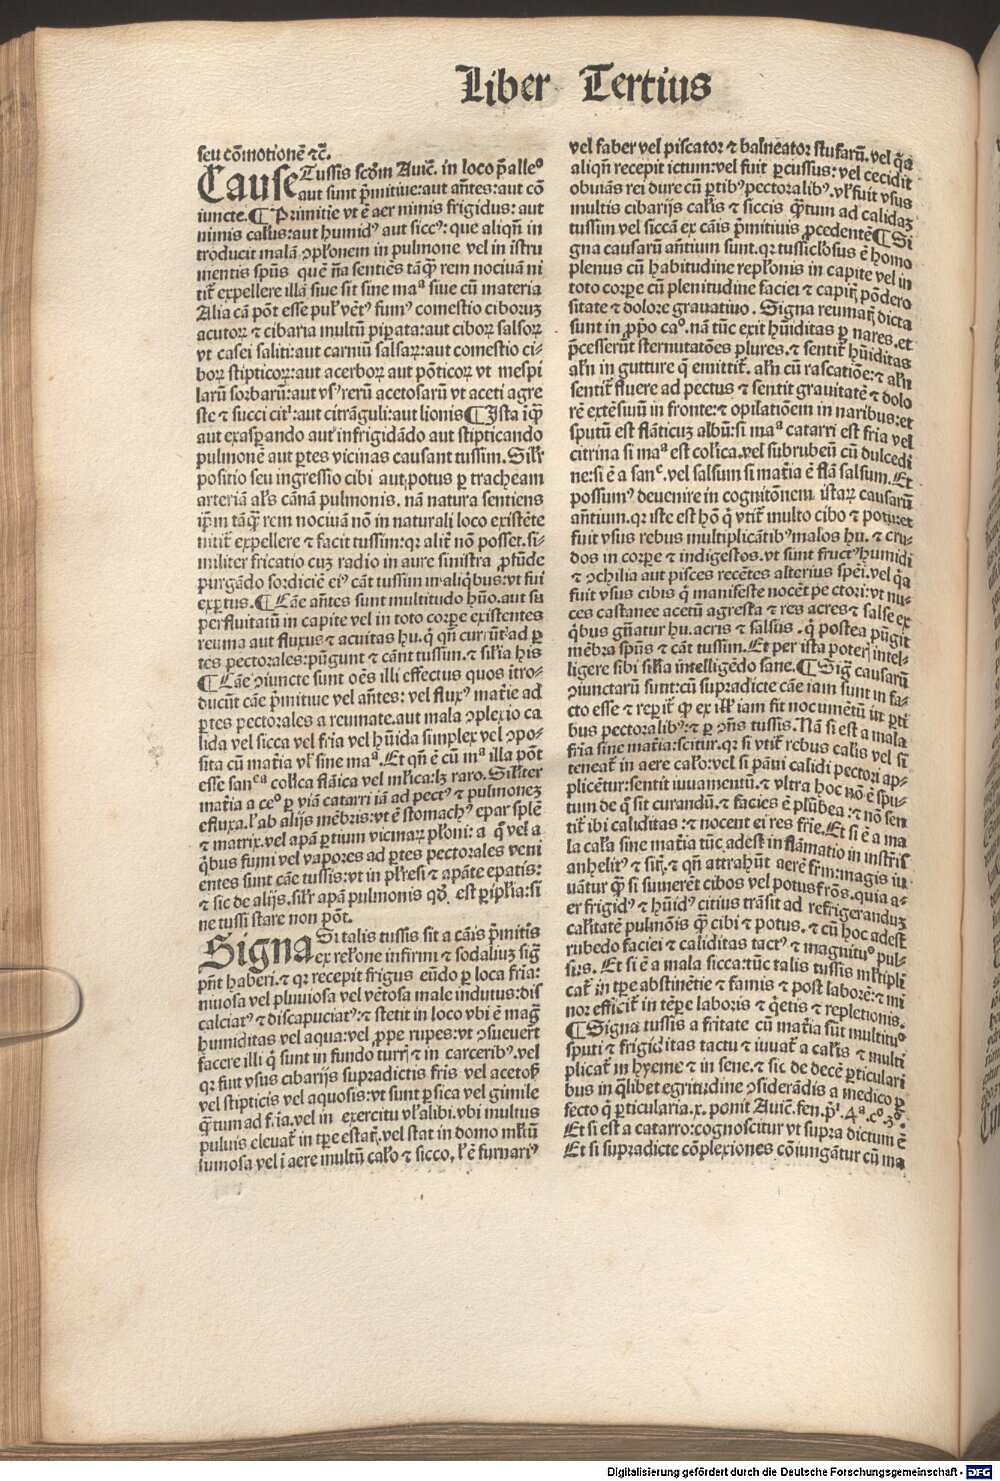 Liber Tertius
seu cõmotionẽ ⁊c̃.
Cause Tussis scďm Auiẽ. in loco p̃alleº
aut sunt p̃mitiue: aut añtes: aut cõ
iuncte. ¶ Primitie vt ẽ aer nimis frigidus: aut
nimis calꝰs: aut humidꝰ aut siccꝰ: que aliqñ in
troducit malã ↄplonem in pulmone vel in istru
mentis spũs quẽ ña sentiẽs tãꝙ̃ rem nociuã ni
tit̃ expellere illã siue sit sine maᵃ siue cũ materia
Alia cã põt esse pul̃ vẽtꝰ fumꝰ comestio ciboruꝫ
acutoꝝ ⁊ cibaria multũ pip̱ata: aut ciboꝝ salsoꝝ
vt casei saliti: aut carniũ salsaꝝ: aut comestio ci-
boꝝ stipticoꝝ: aut acerboꝝ aut põticoꝝ vt mespi
larũ sorbarũ: aut vsꝰ rerũ acetosarũ vt aceti agre
ste ⁊ succi citⁱ: aut citrãguli: aut lionis ¶ Ista iꝙ̃
aut exasp̱ando aut infrigidãdo aut stipticando
pulmonẽ aut p̱tes vicinas causant tussim. Silr̃
positio seu ingressio cibi aut potus p̱ tracheam
arteriã al̃s cãnã pulmonis. nã natura sentiens
ip̃m tãꝙ̃ rem nociuã nõ in naturali loco existẽte
nitit̃ expellere ⁊ facit tussim: qꝛ alit̃ nõ posset. si-
militer fricatio cuꝫ radio in aure sinistra ꝓfũde
purgãdo sordiciẽ eiꝰ cãt tussim in aliq̃bus: vt fui
exp̱tus. ¶ Cãe añtes sunt multitudo hũo. aut su
perfluitatũ in capite vel in toto corp̱e existentes
reuma aut fluxus ⁊ acuitas hu. q̃ qñ currũt ad p̱
tes pectorales: pũgunt ⁊ cãnt tussim. ⁊ sil̃ia his
¶ Cãe ↄiuncte sunt oẽs illi effectus quos ĩtro-
ducũt cãe p̃mitiue vel añtes: vel fluxꝰ mat̃ie ad
p̱tes pectorales a reumate. aut mala ↄplexio ca
lida vel sicca vel fria vel hũida simplex vel ↄpo-
sita cũ mat̃ia vl̃ sine maᵃ. Et qñ ẽ cũ mᵃ illa põt
esse sanᵉᵃ colica flãica vel ml̃ica: lꝫ raro. Silr̃ter
mat̃ia a ceº p̱ viã catarri iã ad pectꝰ ⁊ pulmoneꝫ
efluxa. l̃ ab alijs mẽbris: vt ẽ stomachꝰ epar splẽ
⁊ matrix. vel apã p̱tium vicinaꝝ pl̃oni: a q̃ vel a
q̃bus fumi vel vapores ad p̱tes pectorales veni
entes sunt cãe tussis: vt in pl̃resi ⁊ apãte epatis:
⁊ sic de alijs. silr̃ apã pulmonis qď est p̱ipl̃ia: si
ne tussi stare non põt.
Signa Si talis tussis sit a cãis p̃mitis
ex rel̃one infirmi ⁊ sodaliuꝫ sig̃
pñt haberi. ⁊ qꝛ recepit frigus eũdo p̱ loca fria:
niuosa vel pluuiosa vel vẽtosa male indutus: dis
calciatꝰ ⁊ discapuciatꝰ: ⁊ stetit in loco vbi ẽ mag̃
humiditas vel aqua: vel ꝓpe rupes: vt ↄsueuert̃
facere illi q̃ sunt in fundo turrꝭ ⁊ in carceribꝰ. vel
qꝛ fuit vsus cibarijs supradictis fris vel acetoẞ
vel stipticis vel aquosis: vt sunt p̱sica vel similе
q̃tum ad f.ia. vel in exercitu vl̃ alibi. vbi multus
puluis eleuat̃ in tp̱e estat̃. vel stat in domo ml̃tũ
fumosa vel ĩ aere multũ cal̃o ⁊ sicco, l̃ ẽ furnariꝰ
vel faber vel piscator ⁊ balneator stufarũ. vel q̃a
aliqñ recepit ictum: vel fuit p̱cussus: vel cecidit
obuiãs rei dure cũ p̱tibꝰ pectoralibꝰ. vl̃ fuit vsus
multis cibarijs cal̃is ⁊ siccis q̃tum ad calidaꝫ
tussim vel siccã ex cãis p̃mitiuis ꝓcedentẽ ¶ Si
gna causarũ añtium sunt. qꝛ tussicl̃osus ẽ homo
plenus cũ habitudine repl̃onis in capite vel in
toto corp̱e cũ plenitudine faciei ⁊ capit̃ põdero
sitate ⁊ dolore grauatiuo. Signa reumat̃ dicta
sunt in p̱p̃o caº. nã tũc exit hũiditas p̱ nares. et
p̃cesserũt sternutatões plures. ⁊ sentit̃ hũiditas
alr̃ in gutture q̃ emittit̃. alr̃ cũ rascatiõe: ⁊ alr̃
sentit̃ fluere ad pectus ⁊ sentit grauitatẽ ⁊ dolo
rẽ extẽsiuũ in fronte: ⁊ opilatiõem in naribus: et
sputũ est flãticuꝫ albũ: si maᵃ catarri est fria vel
citrina si maᵃ est col̃ica. vel subrubeũ cũ dulcedi
ne: si ẽ a sanᵉ. vel salsum si mat̃ia ẽ flã salsum. Et
possumꝰ deuenire in cognitõnem istaꝝ causarũ
añtium. qꝛ iste est hõ q̃ vtit̃ multo cibo ⁊ potu: et
fuit vsus rebus multiplicãtibꝰ malos hu. ⁊ cru-
dos in corp̱e ⁊ indigestos. vt sunt fructꝰ humidi
⁊ ↄchilia aut pisces recẽtes alterius sp̃ei. vel q̃a
fuit vsus cibis q̃ manifeste nocẽt pectori: vt nu-
ces castanee acetũ agresta ⁊ res acres ⁊ salse ex
q̃bus gñatur hu. acris ⁊ salsus. q̃ postea pũgit
mẽbra spũs ⁊ cãt tussim. Et per ista poterꝭ intel-
ligere sibi sil̃ia intelligẽdo sane. ¶ Sig̃ causarũ
ↄiunctarũ sunt: cũ supradicte cãe iam sunt in fa-
cto esse ⁊ reperit̃ ꝙ ex ill̃ iam fit nocumẽtũ in p̱ti
bus pectoralibꝰ: ⁊ p̱ ↄñs tussis. Nã si est a mala
fria sine mat̃ia: scitur. qꝛ si vtit̃ rebus cal̃is vel si
teneat̃ in aere cal̃o: vel si pãni calidi pectori ap-
plicẽtur: sentit iuuamentũ. ⁊ vltra hoc nõ ẽ spu-
tum de q̃ sit curandũ. ⁊ facies ẽ plũbea: ⁊ nõ sen
tit̃ ibi caliditas: ⁊ nocent ei res frie. Et si ẽ a ma
la cal̃a sine mat̃ia tũc adest inflãmatio in instr̃is
anhelitꝰ ⁊ sit̃. ⁊ qñ attrahũt aerẽ frm̃: magis iu
uãtur ꝙ̃ si sumerẽt cibos vel potus fr̃os. quia a-
er frigidꝰ ⁊ hũidꝰ citius trãsit ad refrigeranduꝫ
cal̃itatẽ pulmõis ꝙ̃ cibi ⁊ potus. ⁊ cũ hoc adest̃
rubedo faciei ⁊ caliditas tactꝰ ⁊ magnituº pul-
sus. Et si ẽ a mala sicca: tũc talis tussis ml̃tipli
cat̃ in tp̱e abstinẽtie ⁊ famis ⁊ post laborẽ: ⁊ mi
nor efficit̃ in tẽp̱e laboris ⁊ q̃etis ⁊ repletionis.
¶ Signa tussis a fritate cũ mat̃ia sũt multituº
sputi ⁊ frigiditas tactu ⁊ iuuat̃ a cal̃is ⁊ multi
plicat̃ in hyeme ⁊ in sene. ⁊ sic de decẽ p̱ticulari
bus in q̃libet egritudine ↄsiderãdis a medico p̱
fecto q̃ p̱ticularia .x. ponit Auiẽ. fen. p̃ⁱ. 4ᵃ. cº. 3º.
Et si est a catarro: cognoscitur vt supra dictum ẽ
Et si supradicte cõplexiones cõiungãtur cũ ma
Digitalisierung gefördert durch die Deutsche Forschungsgemeinschaft - DFG